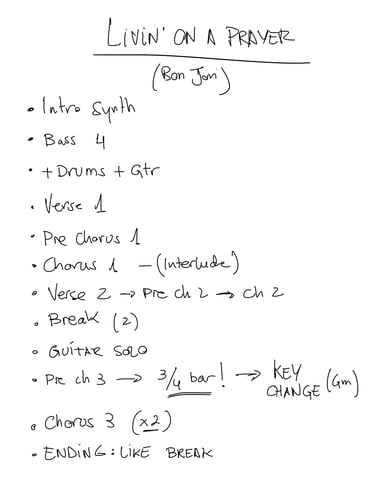 LIVIN' ON A PRAYER
(Bon Jovi)
• Intro Synth
• Bass 4
• + Drums + Gtr
• Verse 1
• Pre Chorus 1
• Chorus 1 – (Interlude)
• Verse 2 → Pre ch 2 → ch 2
• Break (2)
• GUITAR SOLO
• Pre ch 3 → 3/4 bar! → KEY CHANGE (Gm)
• Chorus 3 (x2)
• ENDING: LIKE BREAK